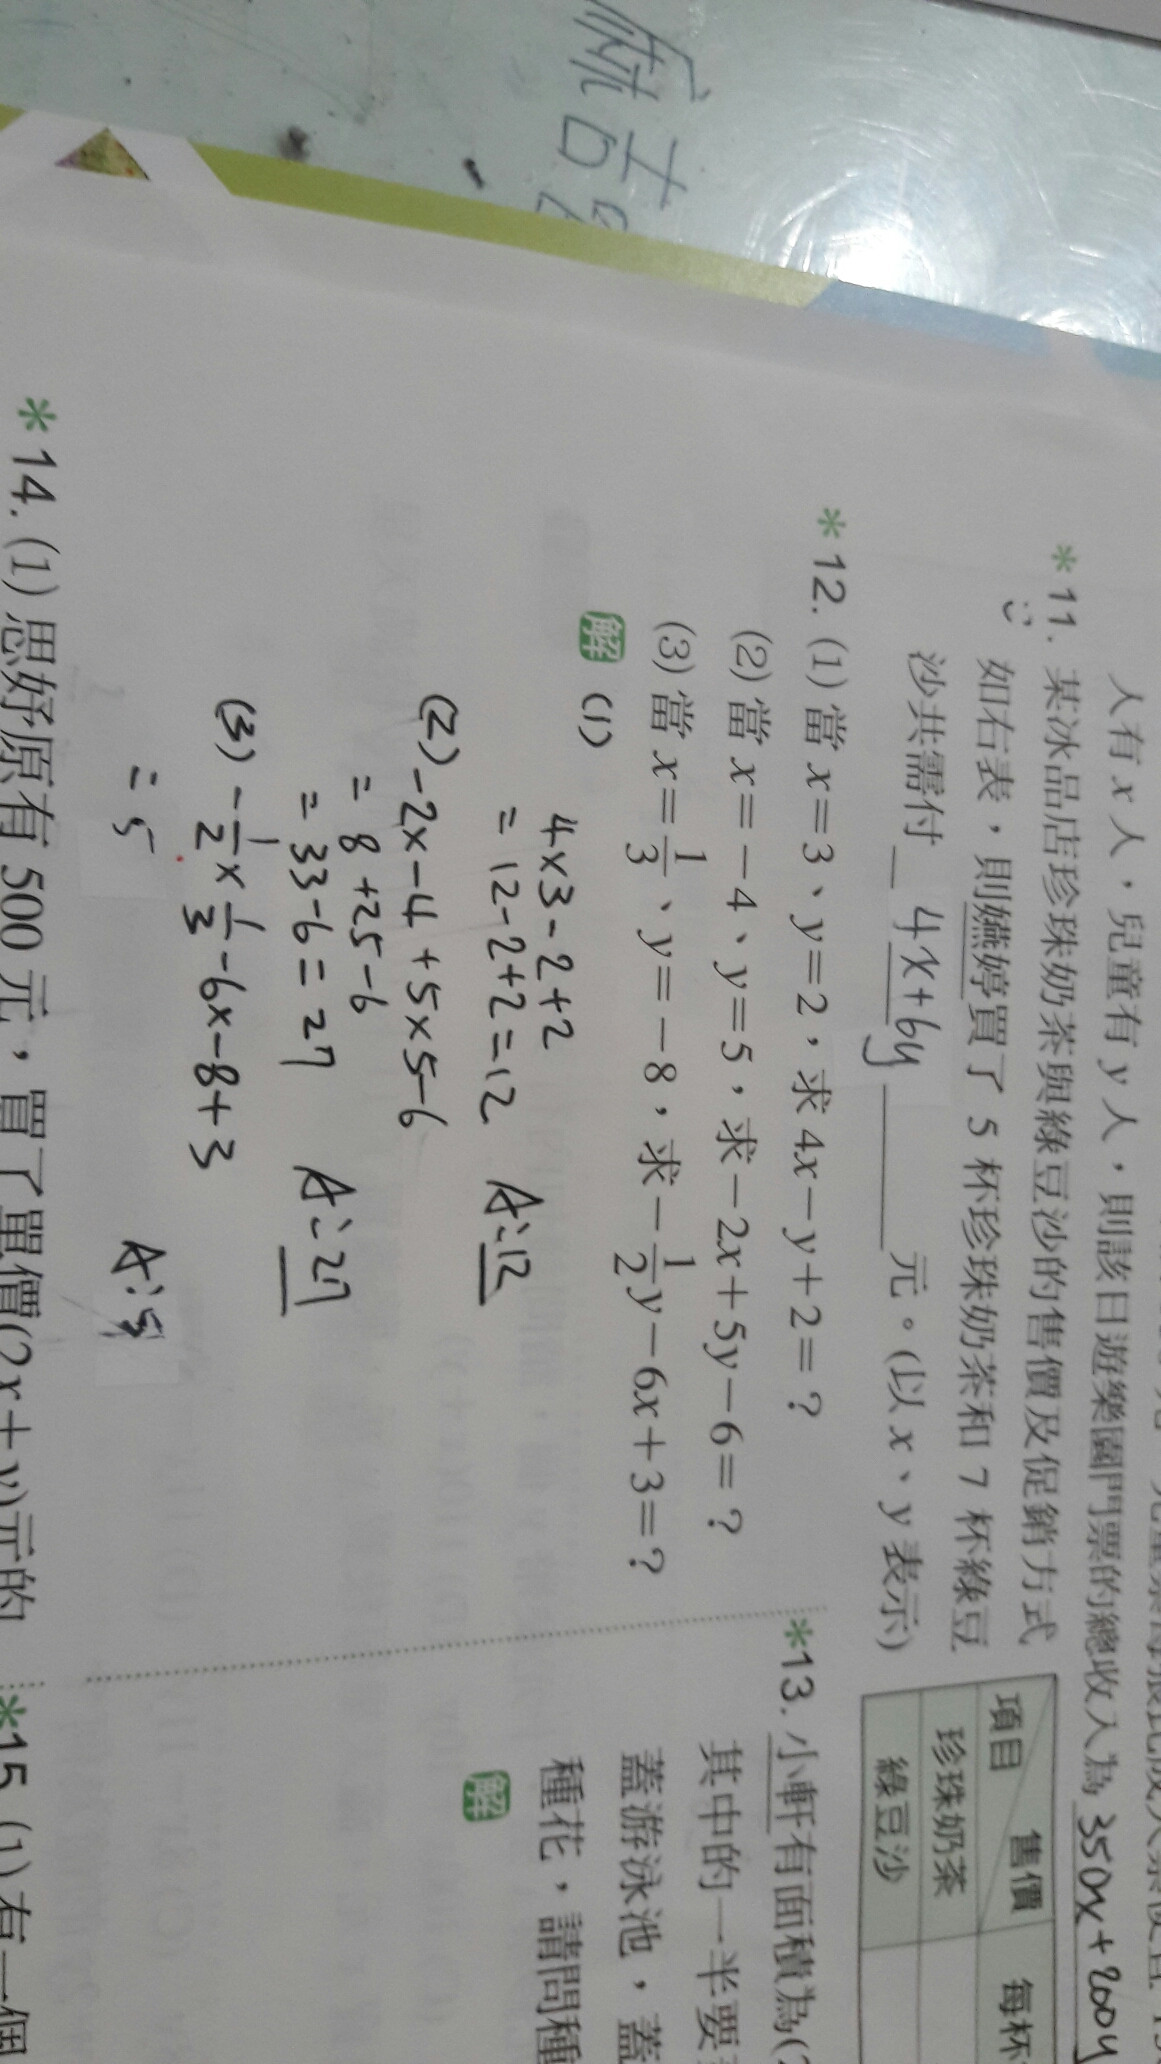 人有 x 人，兒童有 y 人，則該日遊樂園門票的總收入為 350x+200y
*11. 某冰品店珍珠奶茶與綠豆沙的售價及促銷方式
如右表，則嬿婷買了 5 杯珍珠奶茶和 7 杯綠豆
沙共需付 4x+6y 元。(以 x、y 表示)
項目 售價 每杯
珍珠奶茶
綠豆沙
*12. (1) 當 x=3、y=2，求 4x-y+2=?
(2) 當 x=-4、y=5，求 -2x+5y-6=?
(3) 當 x=1/3、y=-8，求 -1/2y-6x+3=?
解 (1)
4×3-2+2
=12-2+2=12 A:12
(2) -2×-4+5×5-6
=8+25-6
=33-6=27 A:27
(3) -1/2×1/3-6×-8+3
=5 A:5
*13. 小軒有面積為(
其中的一半要
蓋游泳池，蓋
種花，請問種
解
*14. (1) 思妤原有 500 元，買了單價(2x+y)元的
*15. (1) 有一個